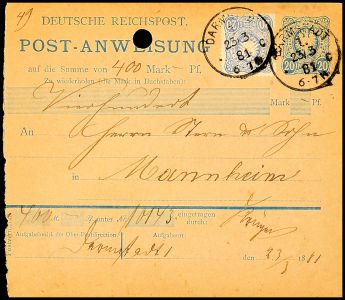 49
DEUTSCHE REICHSPOST.
POST-ANWEISUNG
auf die Summe von 400 Mark — Pf.
Zu wiederholen (die Mark in Buchstaben):
Vierhundert Mark Pf.
An Herrn Stern & Sohn
in Mannheim
400 M. unter Nr. 10143 eingetragen durch:
Aufgabebezirk der Ober-Postdirection: Aufgabe-Nr.
Darmstadt 1 den 23/3 1881
DARMSTADT
23/3
81
6-7N
C
DARMSTADT
1.
23/3
81
6-7N
C
20 20